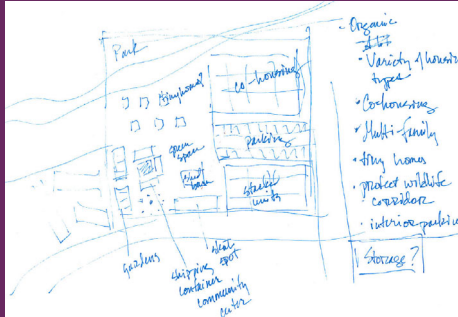 Park
tiny homes?
co-housing
open
space
parking
stacked
units
gardens
shipping
container
community
center
spot
- Organic
• Variety of housing
types
• Cohousing
• Multi-family
• tiny homes
• protect wildlife
corridor
• interior parking
Storage?